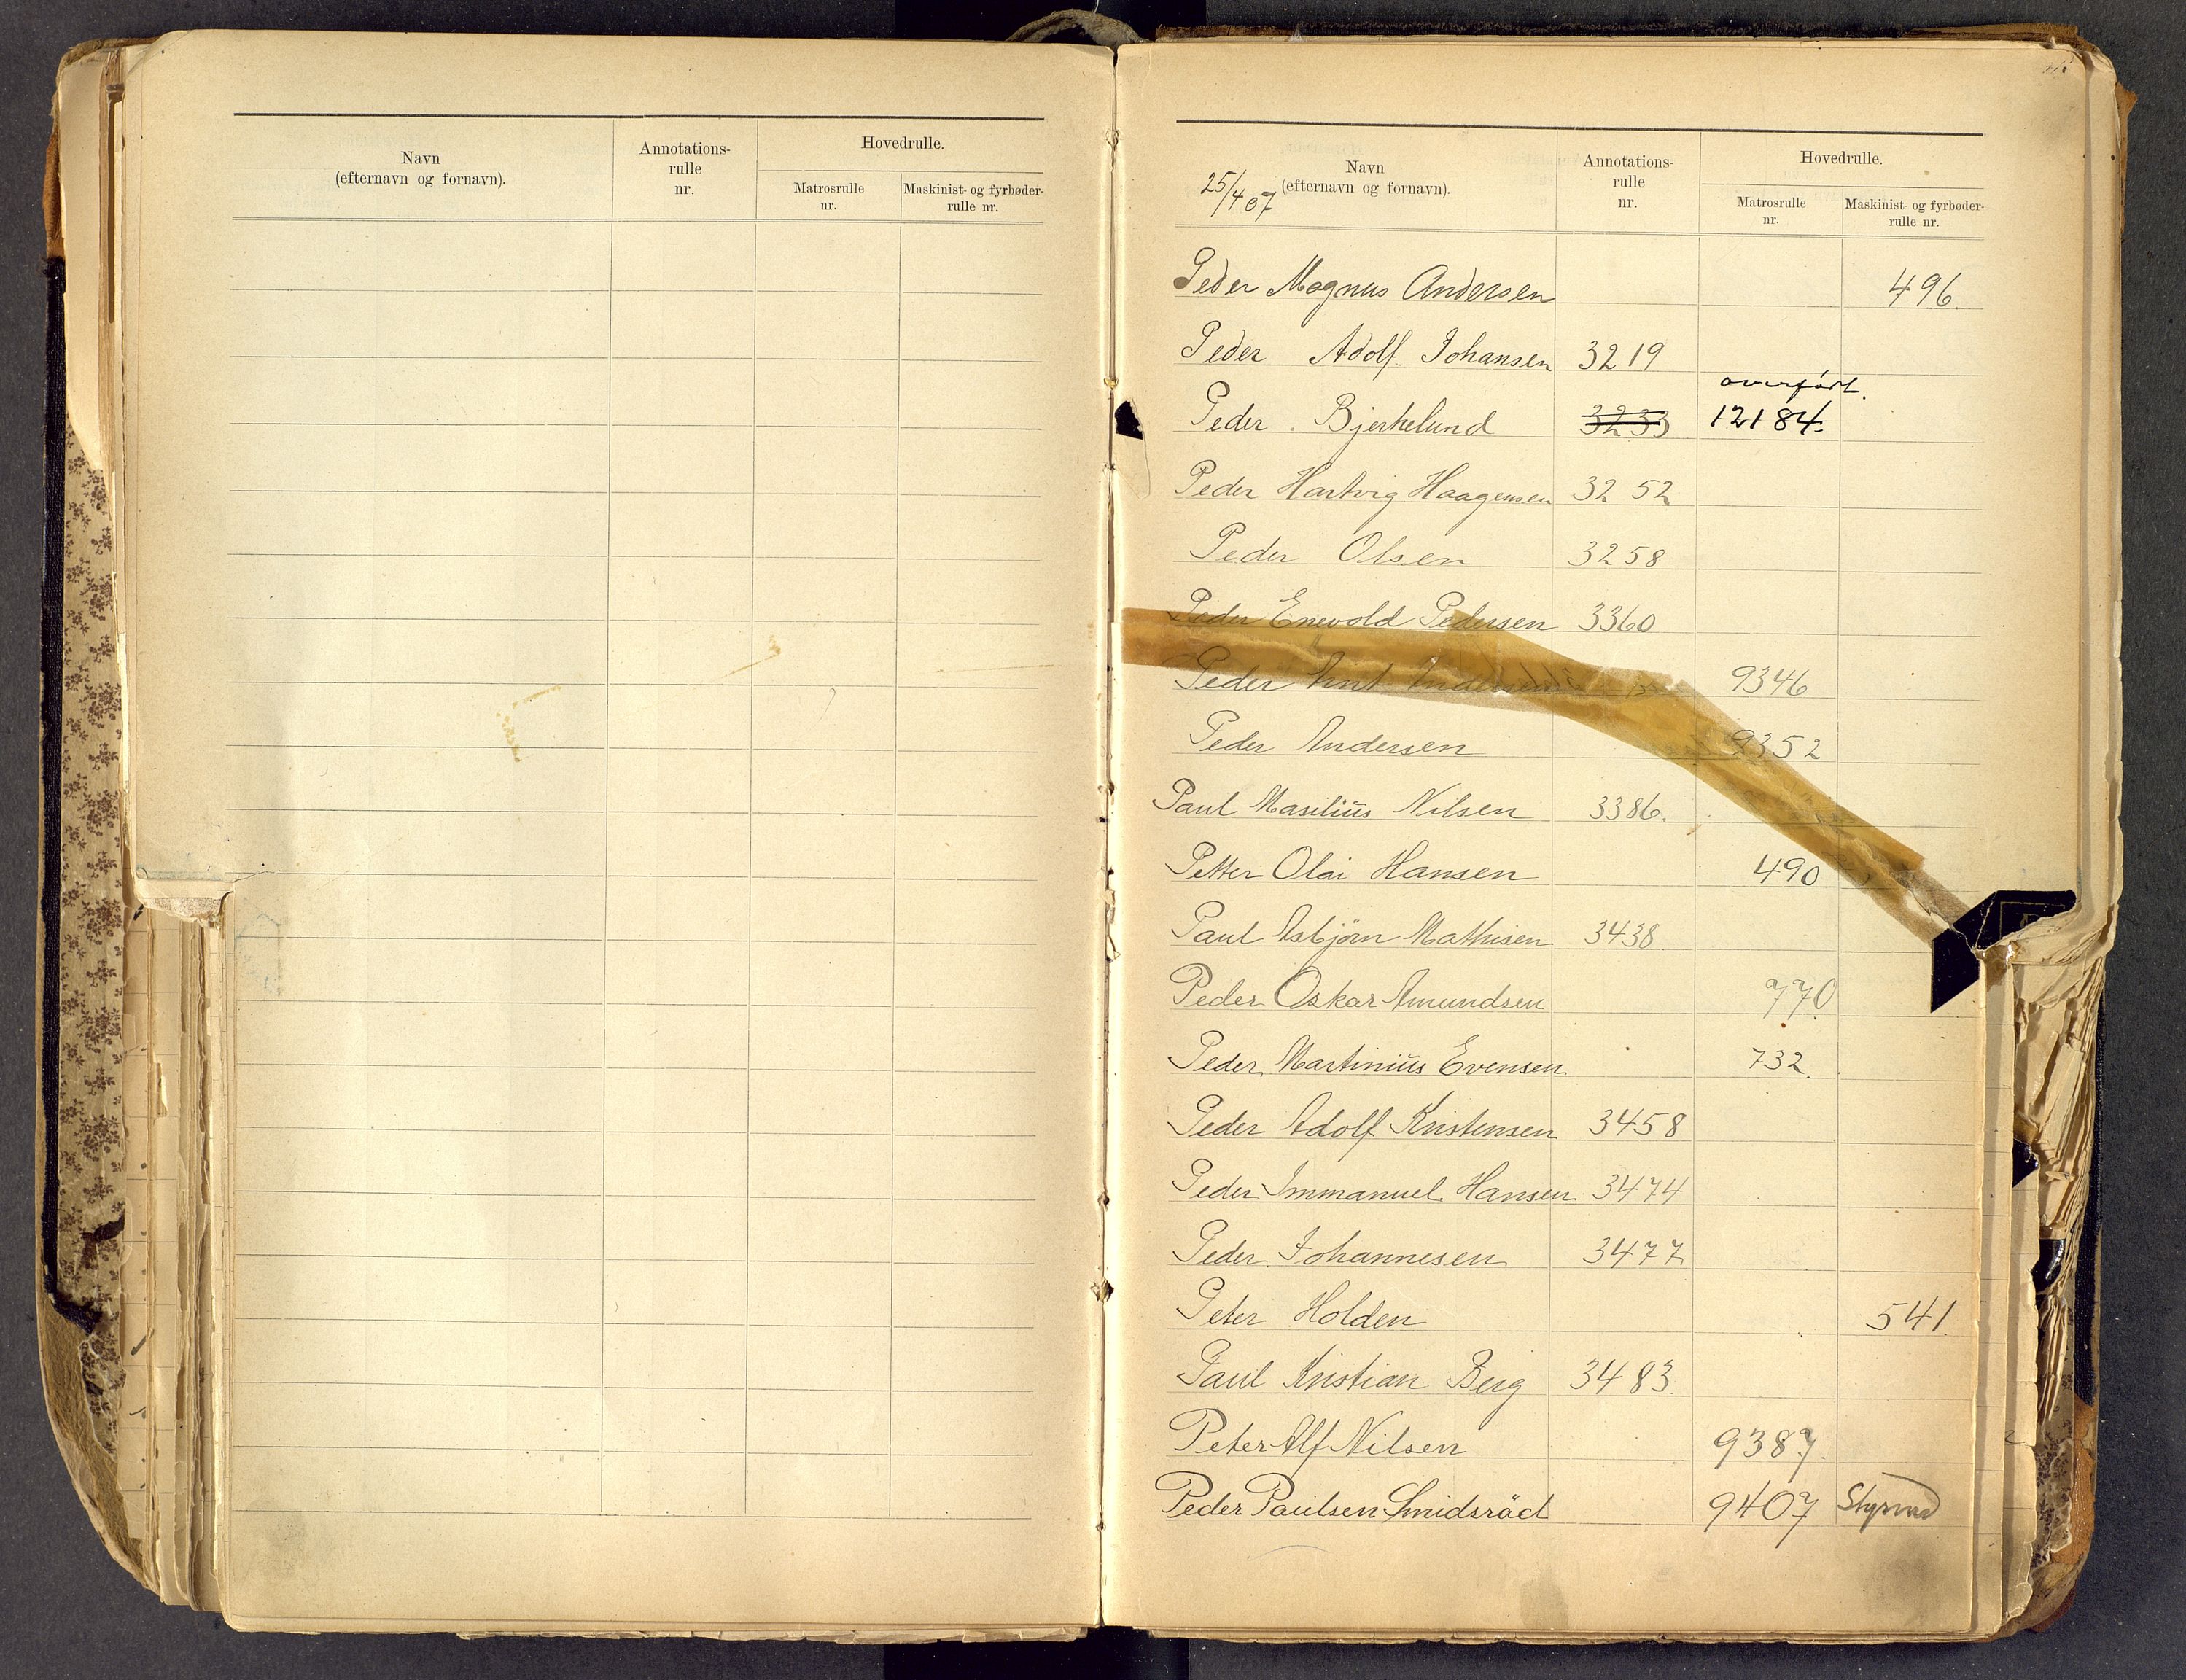 Navn
(efternavn og fornavn).
Annotations-
rulle
nr.
Hovedrulle.
Matrosrulle
nr.
Maskinist- og fyrbøder-
rulle nr.
25/4 07
Navn
(efternavn og fornavn).
Annotations-
rulle
nr.
Hovedrulle.
Matrosrulle
nr.
Maskinist- og fyrbøder-
rulle nr.
Peder Magnus Andersen 496.
Peder Adolf Johansen 3219
overført.
Peder Bjerkelund 3233 12184.
Peder Hartvig Haagensen 3252
Peder Olsen 3258
Peder Enevold Pedersen 3360
Peder Arnt 9346
Peder Andersen 9352
Paul Masilius Nilsen 3386.
Petter Olai Hansen 490
Paul Asbjørn Mathisen 3438
Peder Oskar Amundsen 770
Peder Martinius Evensen 732.
Peder Adolf Kristensen 3458
Peder Immanuel Hansen 3474
Peder Johannesen 3477
Peter Holden 541.
Paul Kristian Berg 3483.
Peter Alf Nilsen 9387.
Peder Paulsen Smidsröd 9407 Styrmd